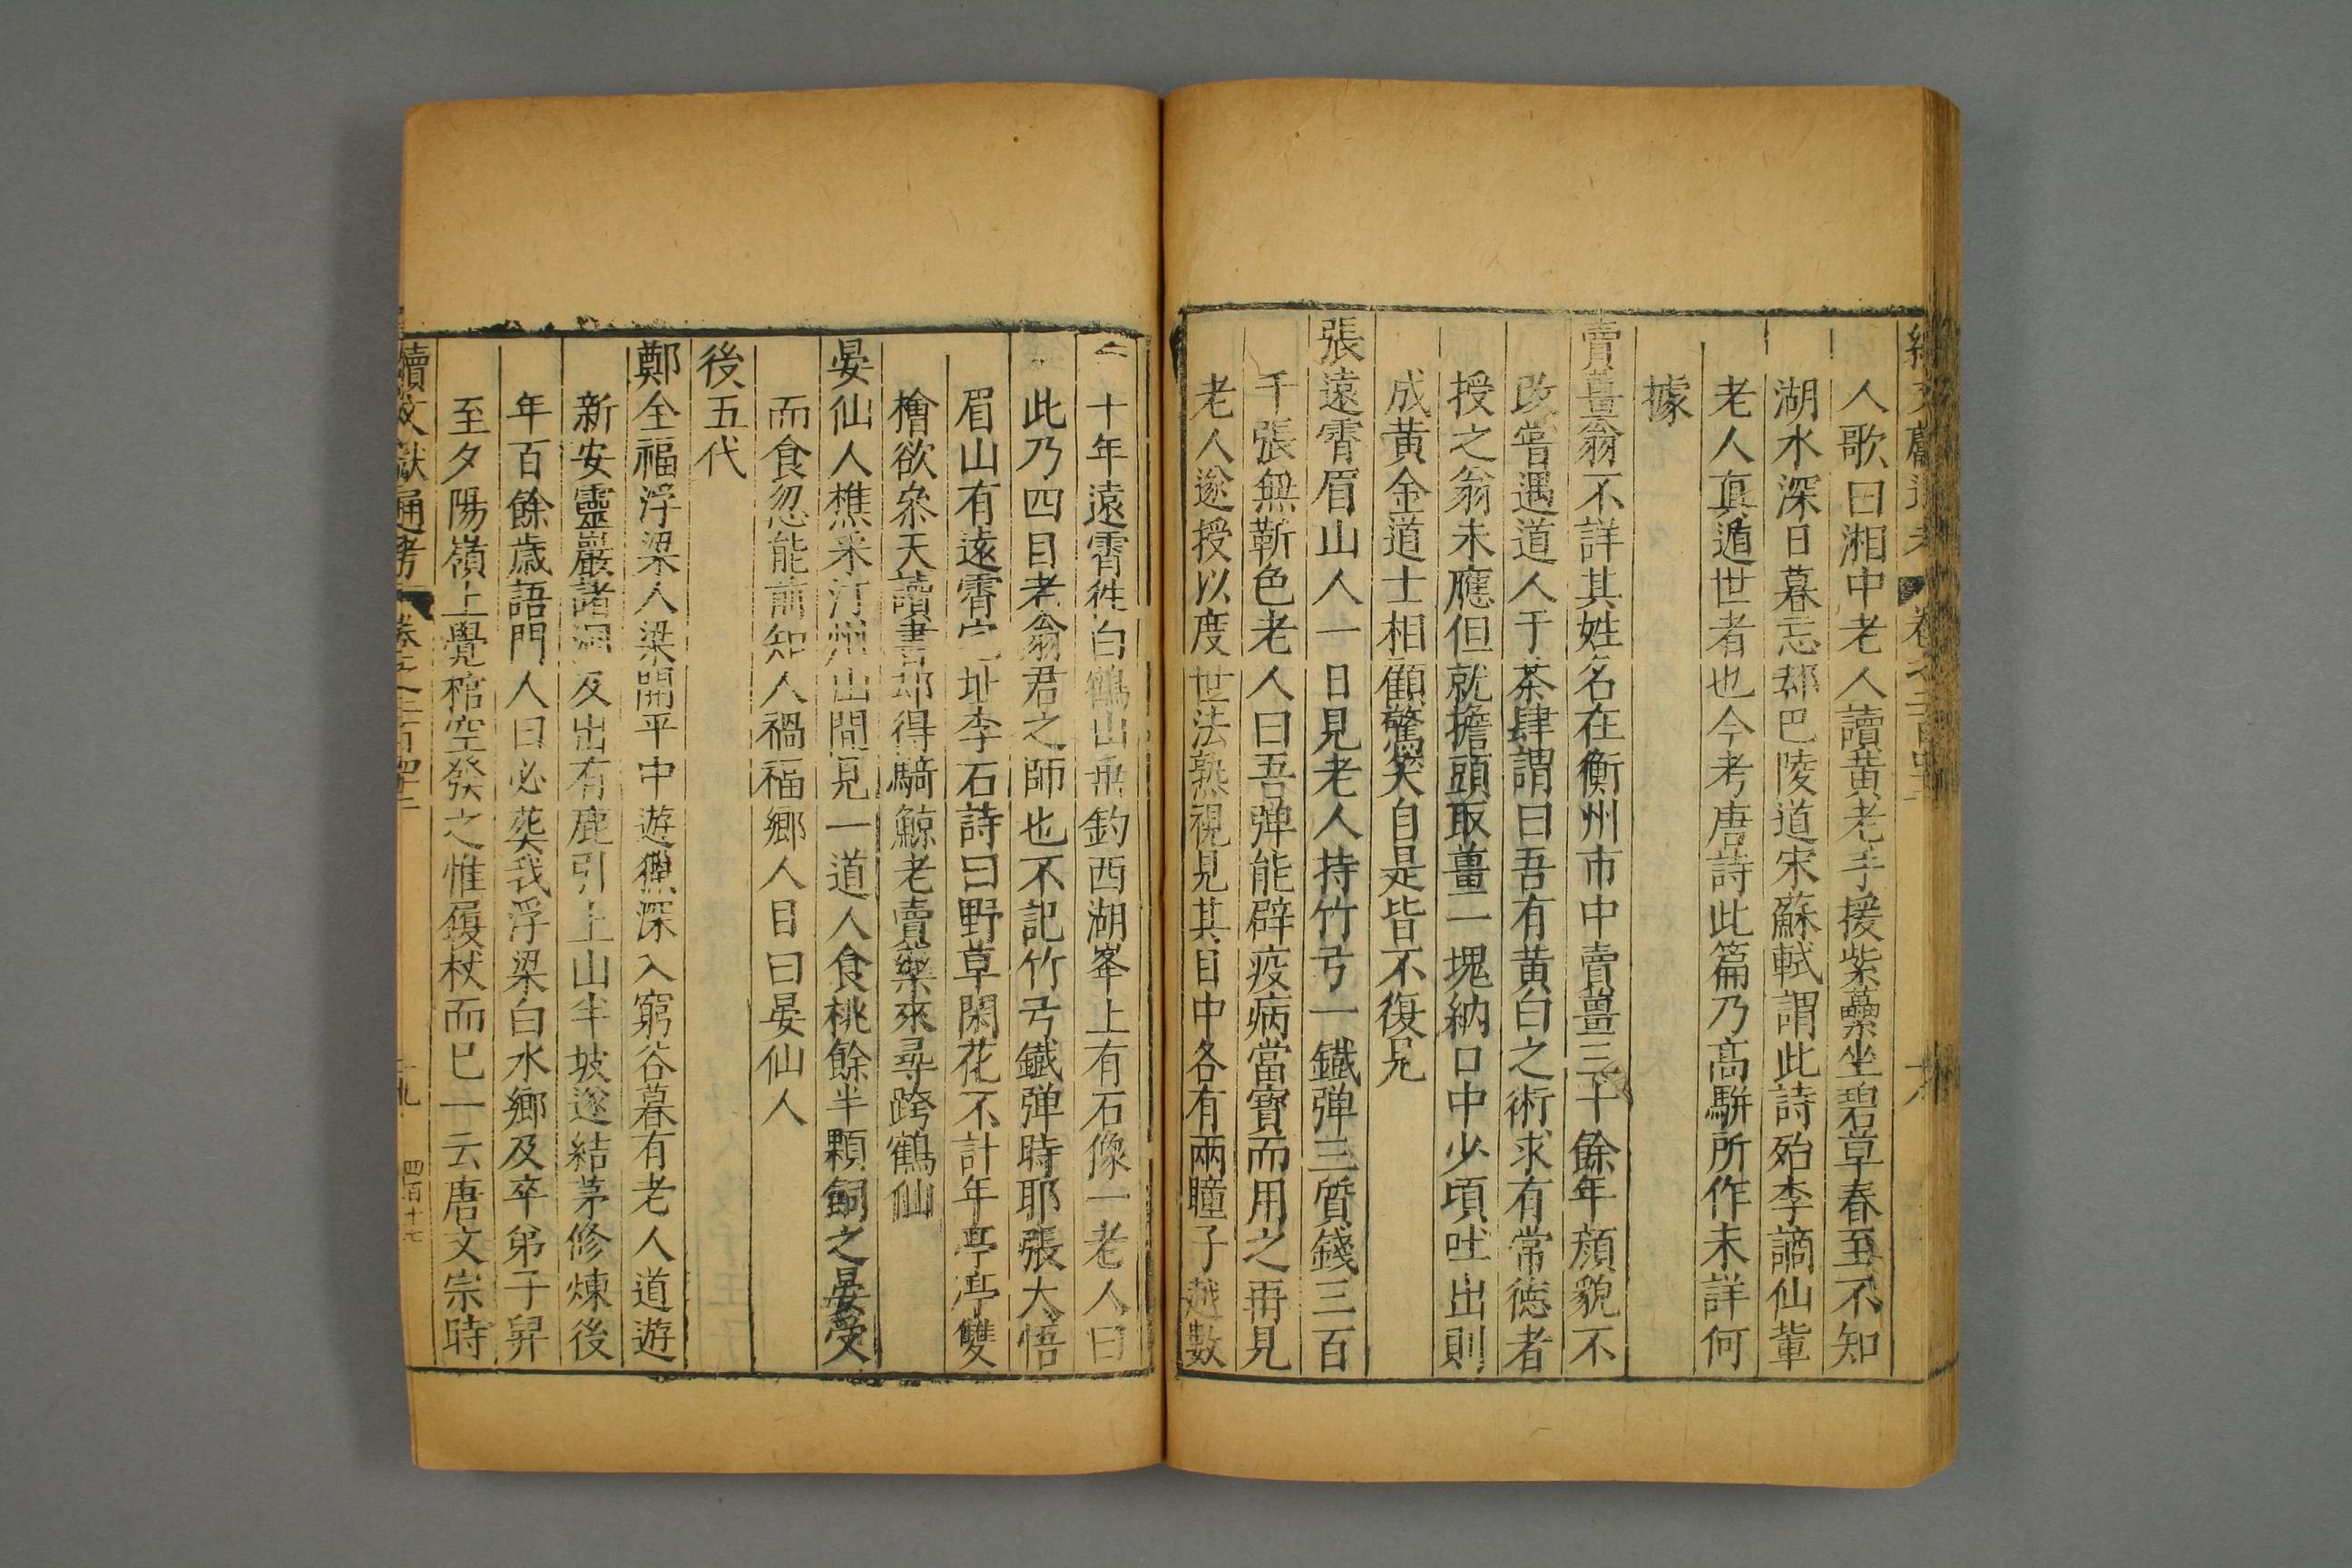 人歌曰湘中老人讀黃老手援紫藟坐碧草春至不知
湖水深日暮忘却巴陵道宋蘇軾謂此詩殆李謫仙輩
老人真遁世者也今考唐詩此篇乃高駢所作未詳何
據
賣薑翁不詳其姓名在衡州市中賣薑三十餘年顏貌不
改嘗遇道人于茶肆謂曰吾有黃白之術求有常德者
授之翁未應但就擔頭取薑一塊納口中少頃吐出則
成黃金道士相顧驚笑自是皆不復見
張遠霄眉山人一日見老人持竹弓一鐵彈三質錢三百
千張無靳色老人曰吾彈能辟疫病當寶而用之再見
老人遂授以度世法熟視見其目中各有兩瞳子越數
十年遠霄徃白鶴山垂釣西湖峯上有石像一老人曰
此乃四目老翁君之師也不記竹弓鐵彈時耶張大悟
眉山有遠霄宅址李石詩曰野草閑花不計年亭亭雙
檜欲叅天讀書却得騎鯨老賣藥來尋跨鶴仙
晏仙人樵采汀州山間見一道人食桃餘半顆飼之晏受
而食忽能前知人禍福鄉人目曰晏仙人
後五代
鄭全福浮梁人梁開平中遊獵深入窮谷暮有老人道遊
新安靈巖諸洞及出有鹿引上山半坡遂結茅修煉後
年百餘歲語門人曰必葬我浮梁白水鄉及卒弟子舁
至夕陽嶺上覺棺空發之惟屨杖而已一云唐文宗時
續文獻通考 卷之二百四十二 十九 四百十七